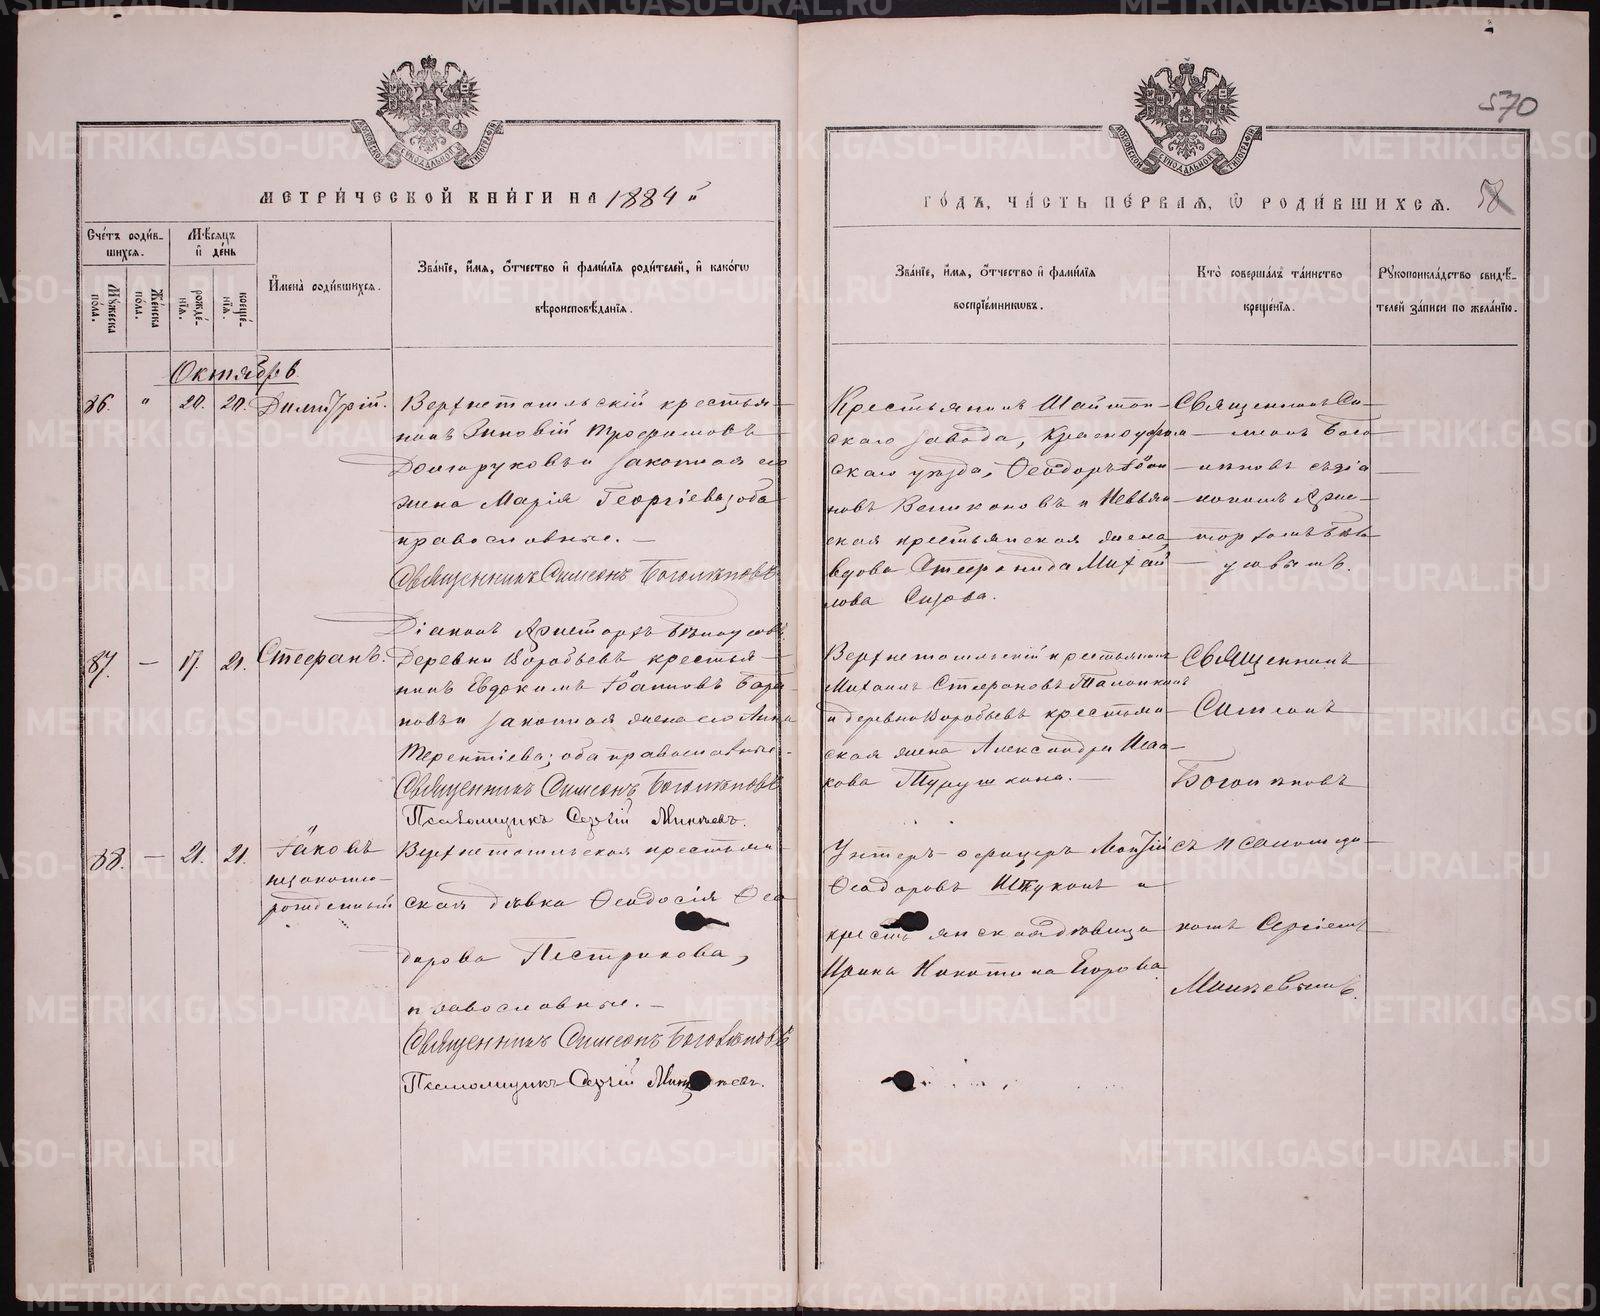 570
МОСКОВСКОЙ СѴНОДАЛЬНОЙ ТИПОГРАФІИ
МОСКОВСКОЙ СѴНОДАЛЬНОЙ ТИПОГРАФІИ
МЕТРИ́ЧЕСКОЙ КНИ́ГИ НА 1884 й
ГО́ДЪ, ЧА́СТЬ ПЕ́РВАЯ, Ѡ РОДИ́ВШИХСЯ. 58
Сче́тъ роди́в-
шихся.
Мѣ́сяцъ
и де́нь
Му́жеска
по́ла.
Же́нска
по́ла.
рожде́-
нія.
креще́-
нія.
Имена̀ роди́вшихся.
Зва́ніе, и́мя, о́тчество и фами́лія роди́телей, и како́гѡ
вѣроисповѣ́данія.
Зва́ніе, и́мя, о́тчество и фами́лія
воспріе́мникѡвъ.
Кто̀ соверша́лъ та́инство
креще́нія.
Рукоприкла́дство свидѣ́-
телей за́писи по жела́нію.
Октябрь
86. " 20. 20. Димитрій.
Верхнетагильскій крестья-
нинъ Зиновій Трофимовъ
Долгоруковъ и законная его
жена Марія Георгіева; оба
православные. —
Священникъ Симеонъ Боголѣповъ
Діаконъ Аристархъ
Крестьянинъ Шайтан-
скаго завода, Красноуфим-
скаго уѣзда, Ѳеодоръ Іоан-
новъ Великановъ и Невьян-
ская крестьянская жена,
вдова Стефанида Михай-
лова Сизова.
Священникъ Си-
меонъ Бого-
лѣповъ съ діа-
кономъ Арис-
тархомъ
87. — 17. 21. Стефанъ.
Деревни Воробьевъ крестья-
нинъ Евдокимъ Іоанновъ Бара-
новъ и законная жена его Анна
Терентіева; оба православные. —
Священникъ Симеонъ Боголѣповъ
Псаломщикъ Сергій Минѣевъ.
Верхнетагильскій крестьянинъ
Михаилъ Стефановъ
и деревни Воробьевъ крестьян-
ская жена Александра Исаа-
кова Турушкина. —
Священникъ
Симеонъ
Боголѣповъ
88. — 21. 21. Іаковъ
незаконно-
рожденный
Верхнетагильская крестьян-
ская дѣвка Ѳеодосія Ѳео-
дорова Пестрикова,
православные. —
Священникъ Симеонъ Боголѣповъ
Псаломщикъ Сергій Минѣевъ.
Унтеръ-офицеръ
Ѳеодоровъ и
крестьянская дѣвица
Ирина Егорова
съ псаломщи-
комъ Сергіемъ
Минѣевымъ.
METRIKI.GASO-URAL.RU